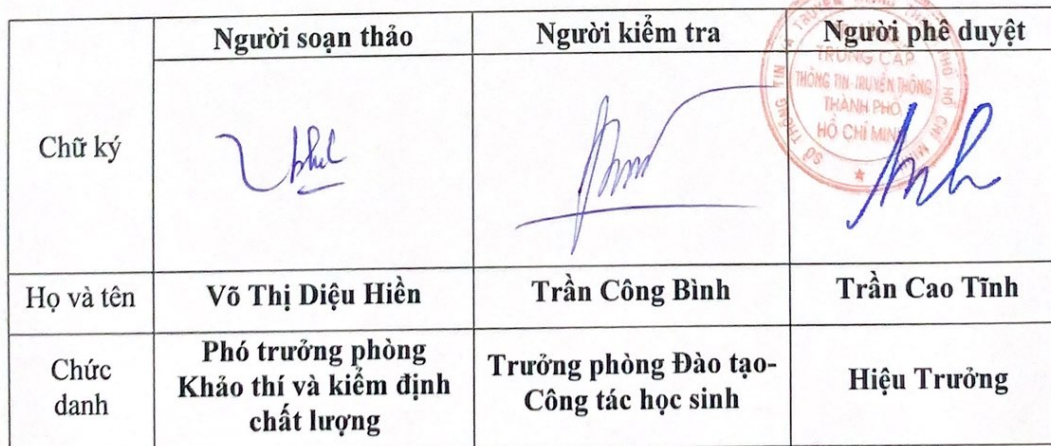 Người soạn thảo Người kiểm tra Người phê duyệt
TRUNG CẤP
THÔNG TIN-TRUYỀN THÔNG
THÀNH PHỐ
HỒ CHÍ MINH
SỞ THÔNG TIN VÀ TRUYỀN THÔNG
Chữ ký
Họ và tên Võ Thị Diệu Hiền Trần Công Bình Trần Cao Tĩnh
Chức danh
Phó trưởng phòng
Khảo thí và kiểm định
chất lượng
Trưởng phòng Đào tạo-
Công tác học sinh
Hiệu Trưởng